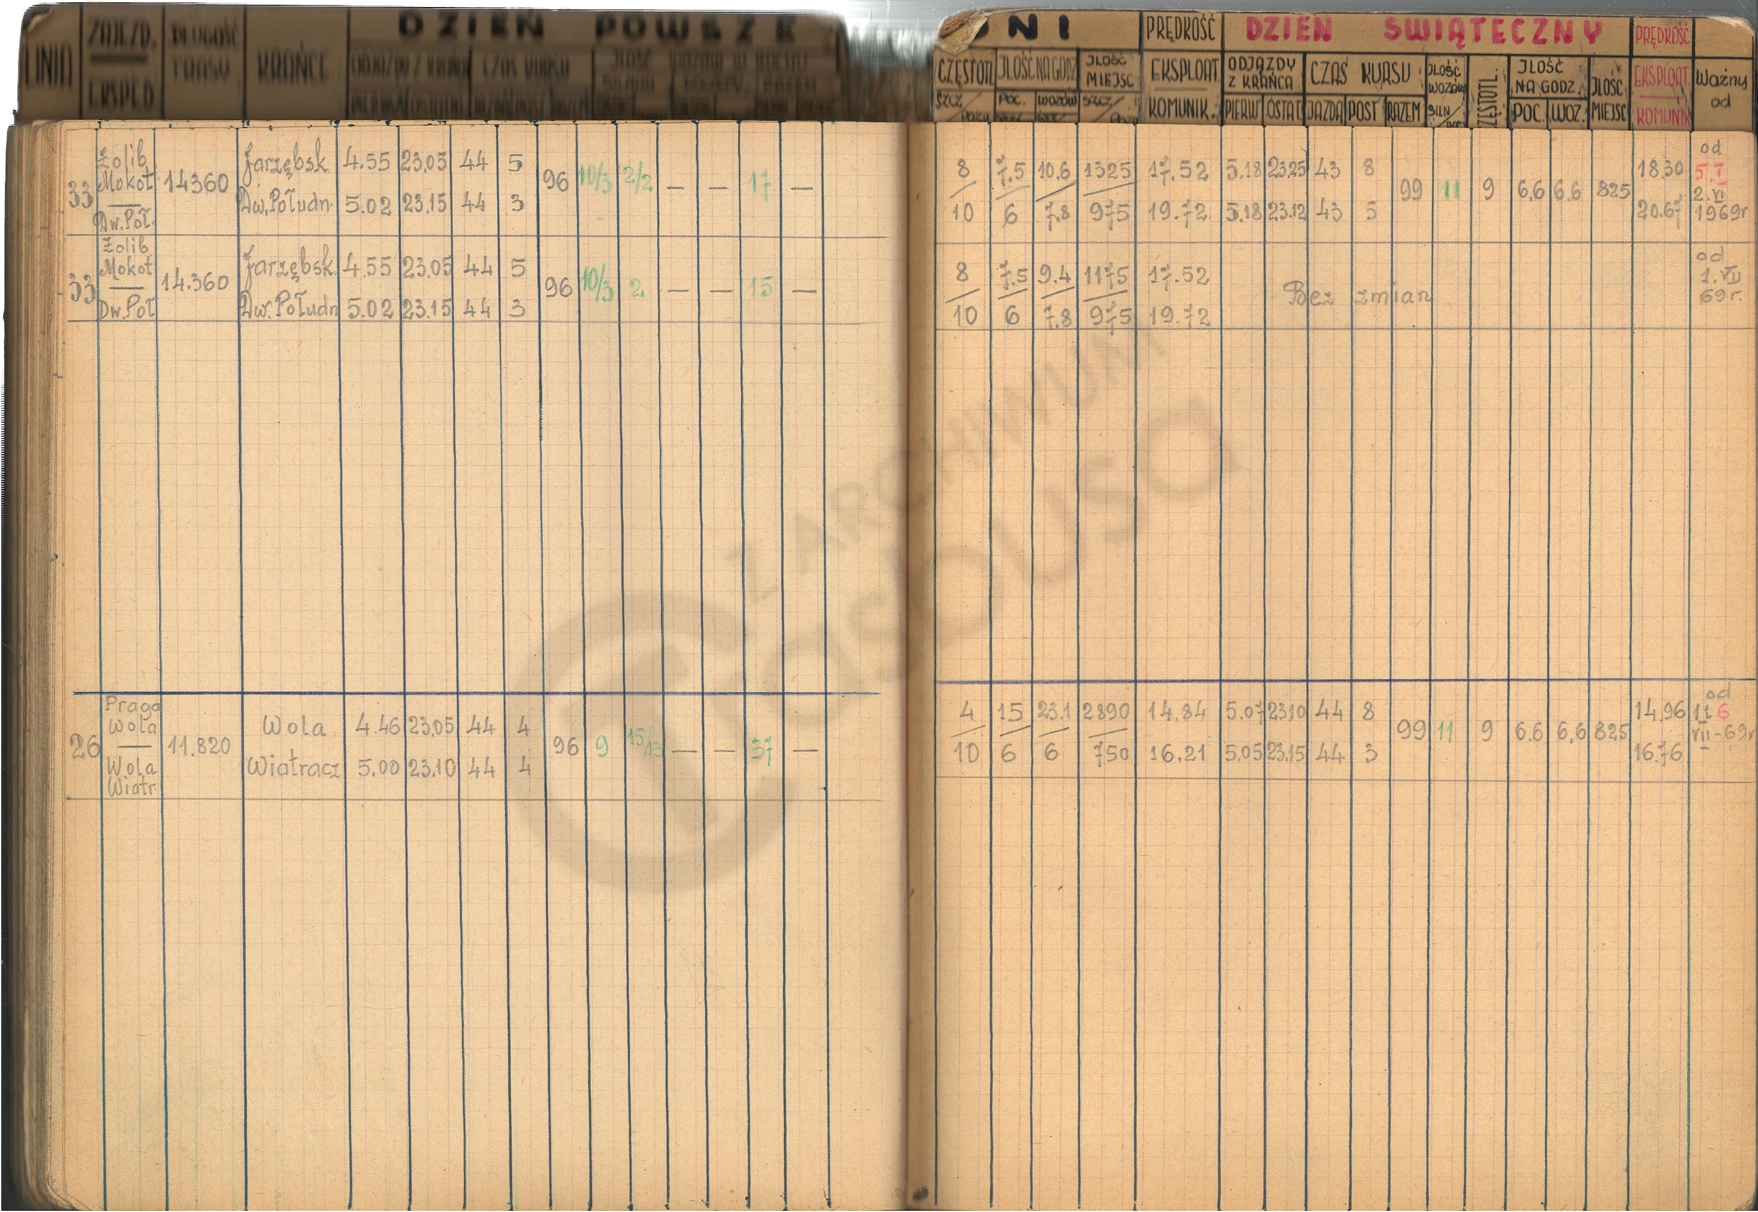 LINIA
ZAJEZD.
EKSPED
DŁUGOŚĆ
TRASY
KRAŃCE
DZIEŃ POWSZE
DNI
CZĘSTOTL
JLOŚĆ NA GODZ
JLOŚĆ
MIEJSC
POC.
WOZÓW
SZCZ/
PRĘDKOŚĆ
EKSPLOAT.
KOMUNIK.
DZIEŃ ŚWIĄTECZNY
ODJAZDY
Z KRAŃCA
PIERW
OSTAT.
CZAS KURSU
JAZDA
POST
RAZEM
JLOŚĆ
WOZÓW
SILN
JLOŚĆ
NA GODZ.
POC.
WOZ.
JLOŚĆ
MIEJSC
PRĘDKOŚĆ
EKSPLOAT.
KOMUNIK
Ważny
od
33
Żolib
Mokot
Dw.Poł.
14360
Jarzębsk. 4.55 23.05 44 5
Dw.Połudn. 5.02 23.15 44 3
96 10/3 2/2 — — 17 —
8 7.5 10.6 1325 17.52 5.18 23.25 43 8
10 6 7.8 975 19.72 5.18 23.12 43 5
99 11 9 6,6 6.6 825
18.30
20.67
od
5.I
2.VI
1969r
33
Żolib
Mokot
Dw.Poł
14.360
Jarzębsk. 4.55 23.05 44 5
Dw.Połudn 5.02 23.15 44 3
96 10/3 2 — — 15 —
8 7.5 9.4 1175 17.52
10 6 7.8 975 19.72
Bez zmian
od
1.VII
69r.
26
Praga
Wola
Wola
Wiatr.
11.820
Wola 4.46 23.05 44 4
Wiatracz 5.00 23.10 44 4
96 9 15/13 — — 37 —
4 15 23.1 2890 14.84 5.07 23.10 44 8
10 6 6 750 16.21 5.05 23.15 44 3
99 11 9 6.6 6,6 825
14,96
16.76
od
VII-69r
Z ARCHIWUM
Trasbusa